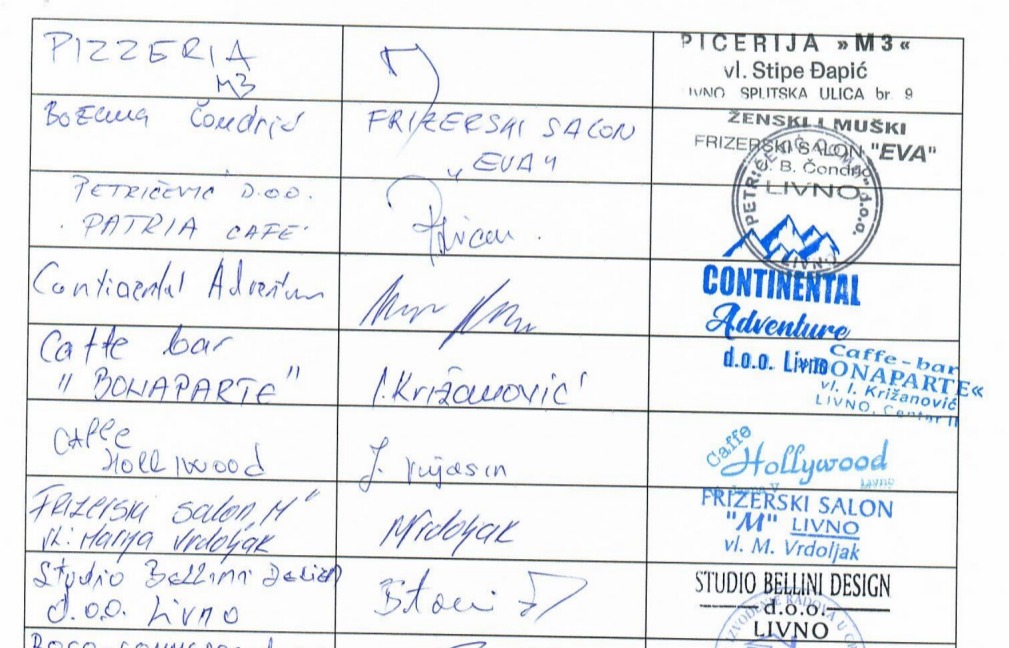 PIZZERIA
M3
PICERIJA »M3«
vl. Stipe Đapić
LIVNO SPLITSKA ULICA br. 9
Božena Čondrić
FRIZERSKI SALON
„EVA"
ŽENSKI I MUŠKI
FRIZERSKI SALON "EVA"
B. Čondrić
LIVNO
PETRIČEVIĆ D.O.O.
PATRIA CAFE
PETRIČEVIĆ d.o.o.
LIVNO
Continental
CONTINENTAL
Adventure
d.o.o. Livno
Caffe bar
"BONAPARTE"
I. Križanović
Caffe-bar
»BONAPARTE«
vl. I. Križanović
LIVNO,
Caffe
Holliwood
J. Vujasin
Caffe
Hollywood
Livno
FRIZERSKI Salon „M"
vl: Marija Vrdoljak
M Vrdoljak
FRIZERSKI SALON
"M" LIVNO
vl. M. Vrdoljak
Studio Bellini
d.o.o. Livno
STUDIO BELLINI DESIGN
d.o.o.
LIVNO